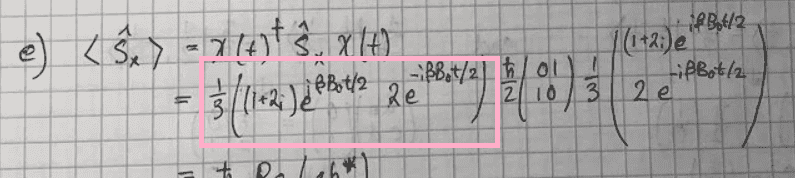 e) ⟨Ŝₓ⟩ = χ(t)† Ŝₓ χ(t)
= 1/3 ((1+2i)e^{iβB₀t/2} 2e^{-iβB₀t/2}) ħ/2 (0 1 / 1 0) 1/3 ((1+2i)e^{iβB₀t/2} / 2e^{-iβB₀t/2})
= ħ Re(ab*)